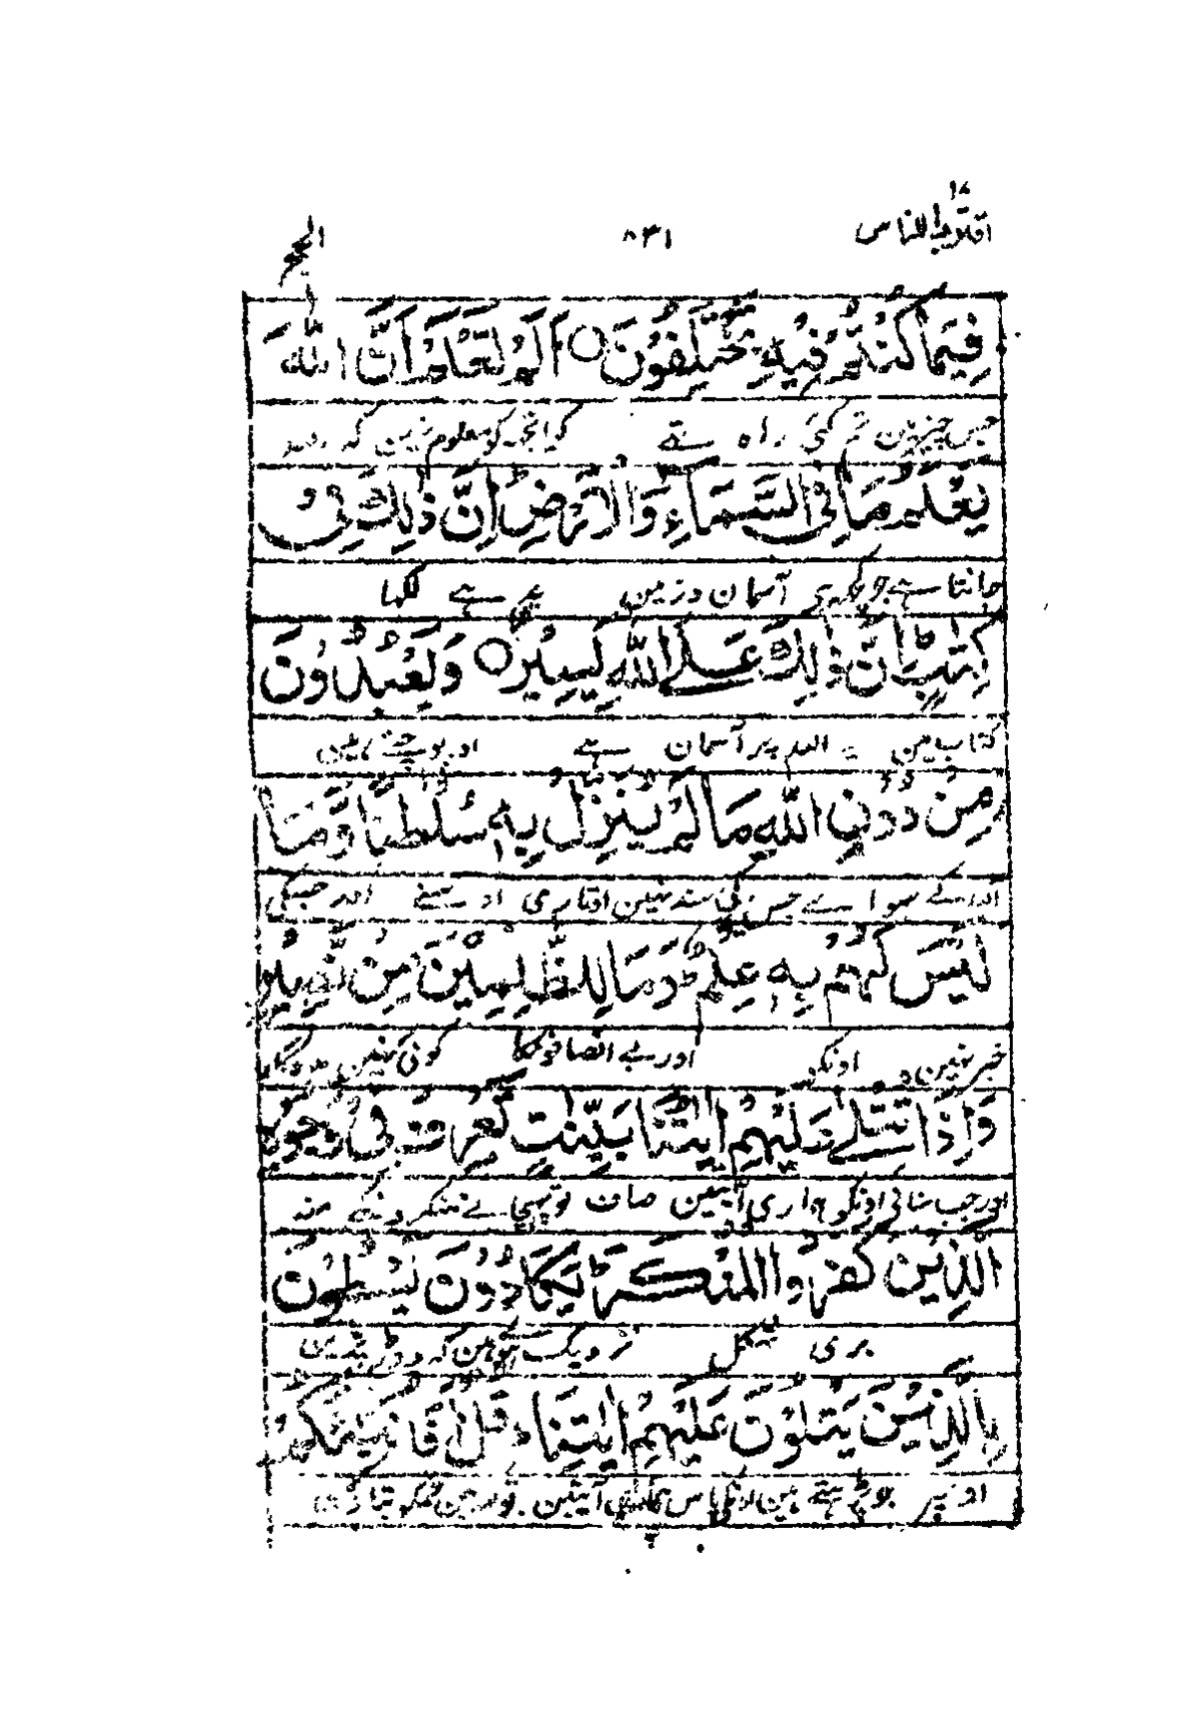 اقترب للناس ۱۷
۸۳۱
الحج
فِيمَا كُنْتُمْ فِيهِ تَخْتَلِفُونَ ○ اَلَمْ تَعْلَمْ اَنَّ اللّٰهَ
جس چیز مین تم کئی راہ تھے کیا تجھکو معلوم نہین کہ اللہ
يَعْلَمُ مَا فِي السَّمَآءِ وَالْاَرْضِ ؕ اِنَّ ذٰلِكَ فِيْ
جانتا ہے جو کچھ ہی آسمان و زمین یہ ہے لکھا
كِتٰبٍ ؕ اِنَّ ذٰلِكَ عَلَى اللّٰهِ يَسِيْرٌ ○ وَيَعْبُدُوْنَ
کتاب مین یہ اللہ پر آسان ہے اور پوجتے ہین
مِنْ دُوْنِ اللّٰهِ مَا لَمْ يُنَزِّلْ بِهٖ سُلْطٰنًا وَّمَا
اللہ کے سوا اے جس کی سند نہین اتاری اوسنے اور جسکی
لَيْسَ لَهُمْ بِهٖ عِلْمٌ ؕ وَمَا لِلظّٰلِمِيْنَ مِنْ نَّصِيْرٍ
خبر نہین اونکو اور بے انصافونکا کوئی نہین مددگار
وَاِذَا تُتْلٰى عَلَيْهِمْ اٰيٰتُنَا بَيِّنٰتٍ تَعْرِفُ فِيْ وُجُوْهِ
اور جب سنائی اونکو ہماری آیتین صاف تو پہچانے منکرونکے منہ
الَّذِيْنَ كَفَرُوا الْمُنْكَرَ ؕ يَكَادُوْنَ يَسْطُوْنَ
بری شکل نزدیک ہوتے ہین کہ دوڑ پڑین
بِالَّذِيْنَ يَتْلُوْنَ عَلَيْهِمْ اٰيٰتِنَا ؕ قُلْ اَفَاُنَبِّئُكُمْ
اونپر جو پڑہتے ہین اونکے پاس ہماری آیتین تو کہہ مین تمکو بتاؤن